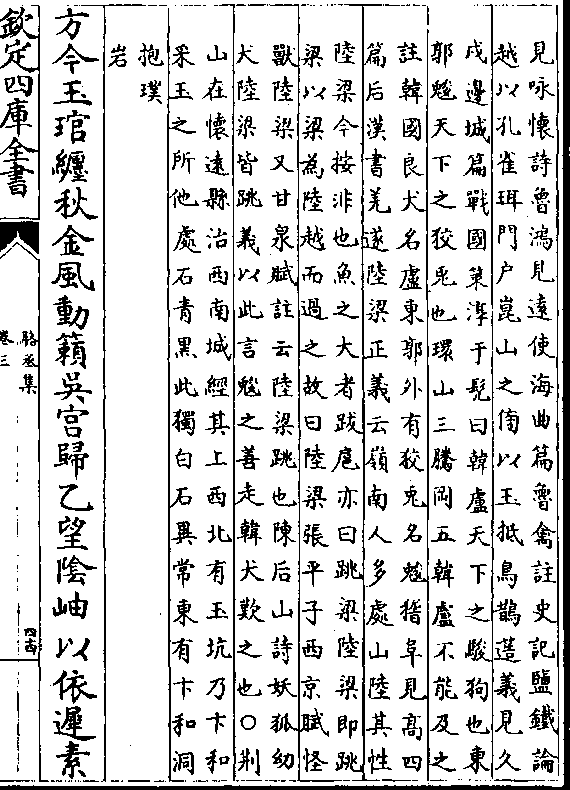 見咏懷詩魯鴻見遠使海曲篇魯禽註史記鹽鐵論
越以孔雀珥門户崑山之傍以玉抵鳥鵲蓫義見久
戍邊城篇戰國策淳于髡曰韓盧天下之駿狗也東
郭㕙天下之狡兎也環山三騰岡五韓盧不能及之
註韓國良犬名盧東郭外有狡兎名㕙稽阜見髙四
篇后漢書羌遂陸梁正義云嶺南人多處山陸其性
陸梁今按非也魚之大者跋扈亦曰跳梁陸梁即跳
梁以梁為陸越而過之故曰陸梁張平子西京賦怪
獸陸梁又甘泉賦註云陸梁跳也陳后山詩妖狐幼
犬陸梁皆跳義以此言㕙之善走韓犬歎之也○荆
山在懷遠縣沽西南城經其上西北有玉坑乃卞和
采玉之所他處石青黑此獨白石異常東有卞和洞
抱璞
岩
方今玉琯纏秋金風動籟吳宫歸乙望陰岫以依遲素
欽定四庫全書
駱丞集
卷三